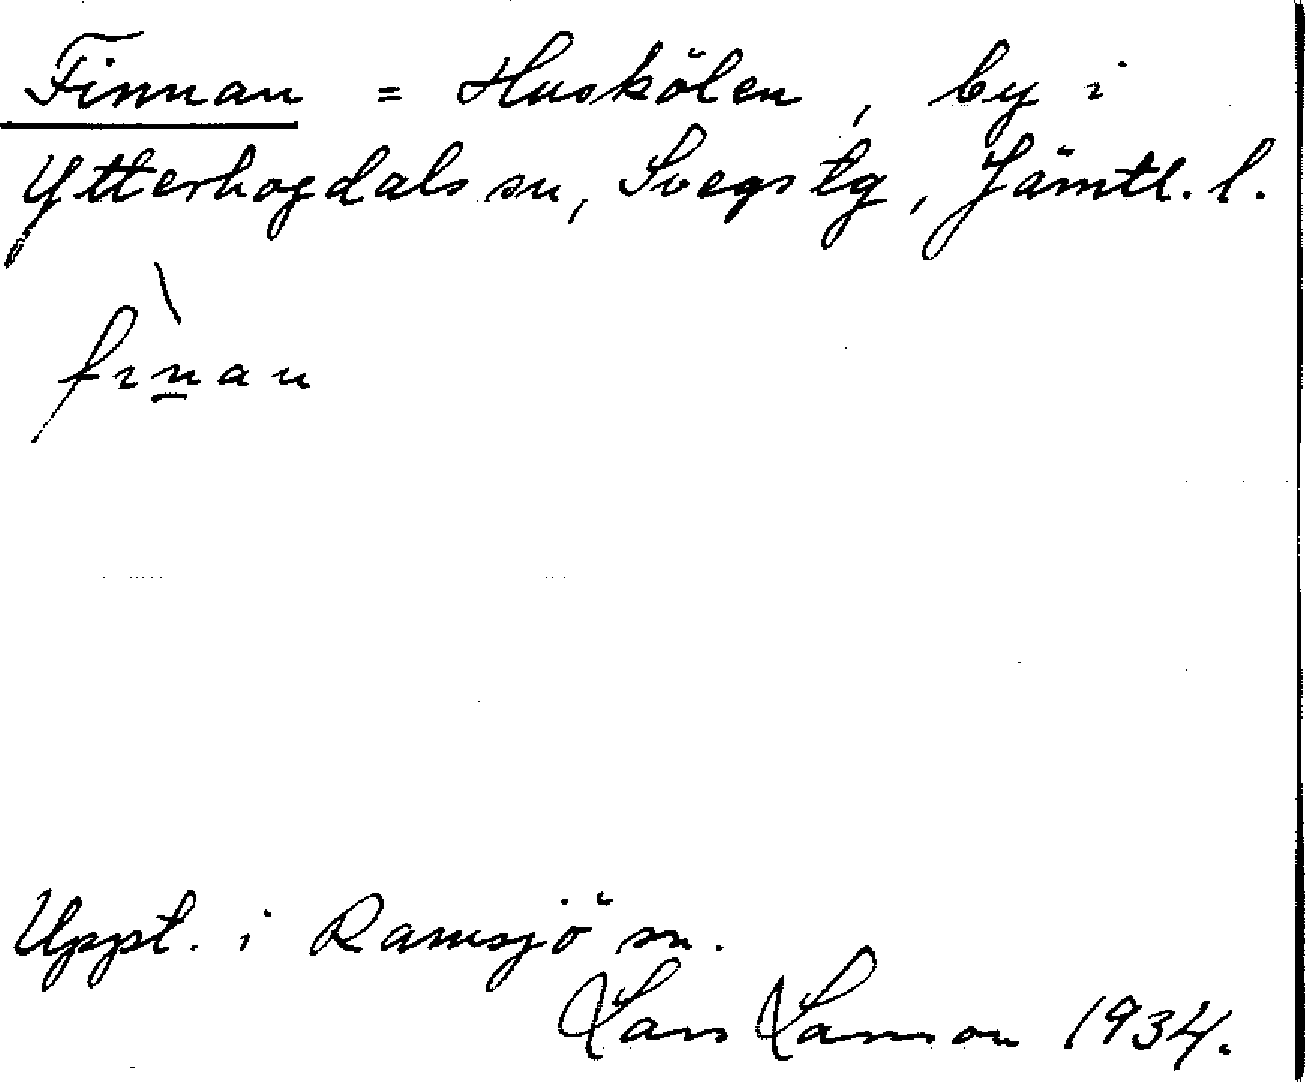 Finnan = Huskölen, by i
Ytterhogdals sn, Svegs tg, Jämtl. l.
fı̀n̲an
Uppt. i Ramsjö sn.
Lars Larsson 1934.